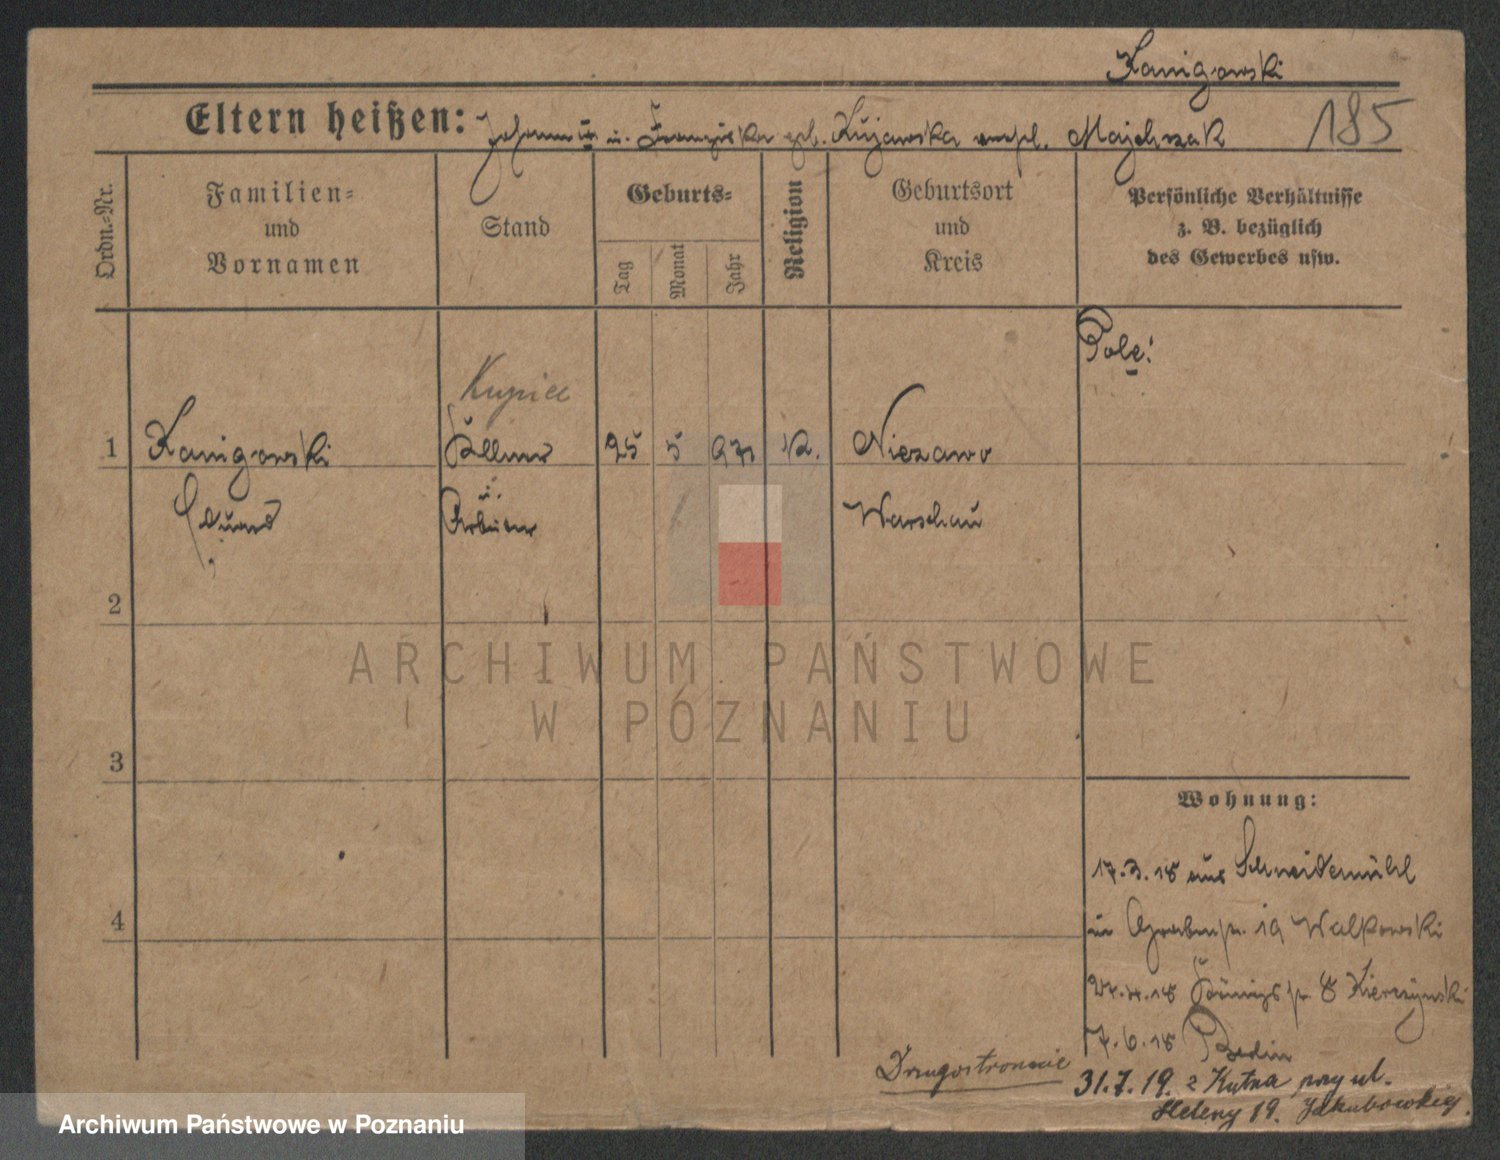 Kanigowski
Eltern heißen: Johann u. Franziska geb. Kujawska verehl. Majchrzak 185
Ordn.-Nr.
Familien- und Vornamen
Stand
Geburts-
Tag
Monat
Jahr
Religion
Geburtsort und Kreis
Persönliche Verhältnisse z. B. bezüglich des Gewerbes usw.
Pole!
Kupiec
1 Kanigowski Kellner 25 5 97 K. Niezawo
u.
Arbeiter Warschau
2
ARCHIWUM PAŃSTWOWE
W POZNANIU
3
4
Wohnung:
17.3.18 aus Schneidemühl
in Grabenstr. 19 Walkowski
24.4.18 Königstr 8 Kierczynski
7.6.18 Berlin
Drugostronnie
31.7.19. z Kutna przy ul.
Heleny 19. Jakubowskiej.
Archiwum Państwowe w Poznaniu